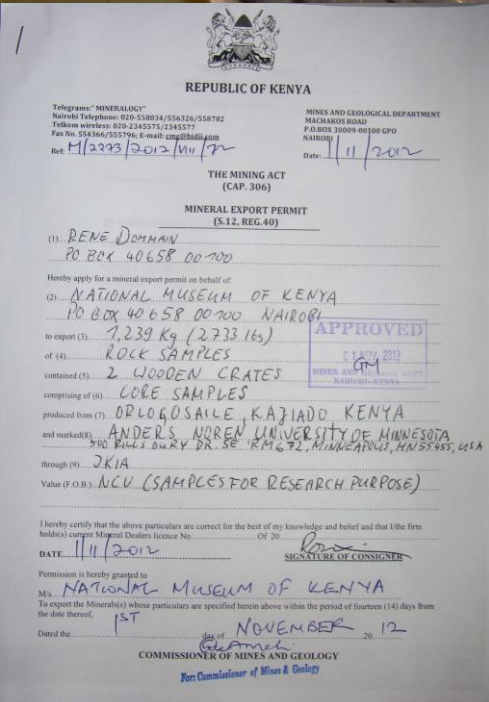 1
REPUBLIC OF KENYA
Telegrams:" MINERALOGY"
Nairobi Telephone: 020-558034/556326/558782
Telkom wireless: 020-2345575/2345577
Fax No. 554366/555796; E-mail: cmg@bidii.com
Ref: M/2273/2012/VIII/72
MINES AND GEOLOGICAL DEPARTMENT
MACHAKOS ROAD
P.O.BOX 30009-00100 GPO
NAIROBI
Date: 1/11/2012
THE MINING ACT
(CAP. 306)
MINERAL EXPORT PERMIT
(S.12, REG.40)
(1) RENE DOMMAIN
PO BOX 40658 00100
Hereby apply for a mineral export permit on behalf of:
(2) NATIONAL MUSEUM OF KENYA
PO BOX 40658 00100 NAIROBI
to export (3) 1,239 Kg (2733 lbs)
of (4) ROCK SAMPLES
contained (5) 2 WOODEN CRATES
comprising of (6) CORE SAMPLES
produced from (7) ORLOGOSAILE, KAJIADO KENYA
and marked(8) ANDERS NOREN UNIVERSITY OF MINNESOTA
500 PILLSBURY DR. SE RM 672, MINNEAPOLIS, MN 55455, USA
through (9) JKIA
Value (F.O.B.) NCV (SAMPLES FOR RESEARCH PURPOSE)
APPROVED
NOV 2012
MINES AND DEPT.
NAIROBI-KENYA
I hereby certify that the above particulars are correct for the best of my knowledge and belief and that I/the firm
holds(s) current Mineral Dealers licence No. Of 20
DATE 1/11/2012
SIGNATURE OF CONSIGNER
Permission is hereby granted to
M/s NATIONAL MUSEUM OF KENYA
To export the Minerals(s) whose particulars are specified herein above within the period of fourteen (14) days from
the date thereof,
Dated the 1ST day of NOVEMBER 2012
COMMISSIONER OF MINES AND GEOLOGY
For: Commissioner of Mines & Geology